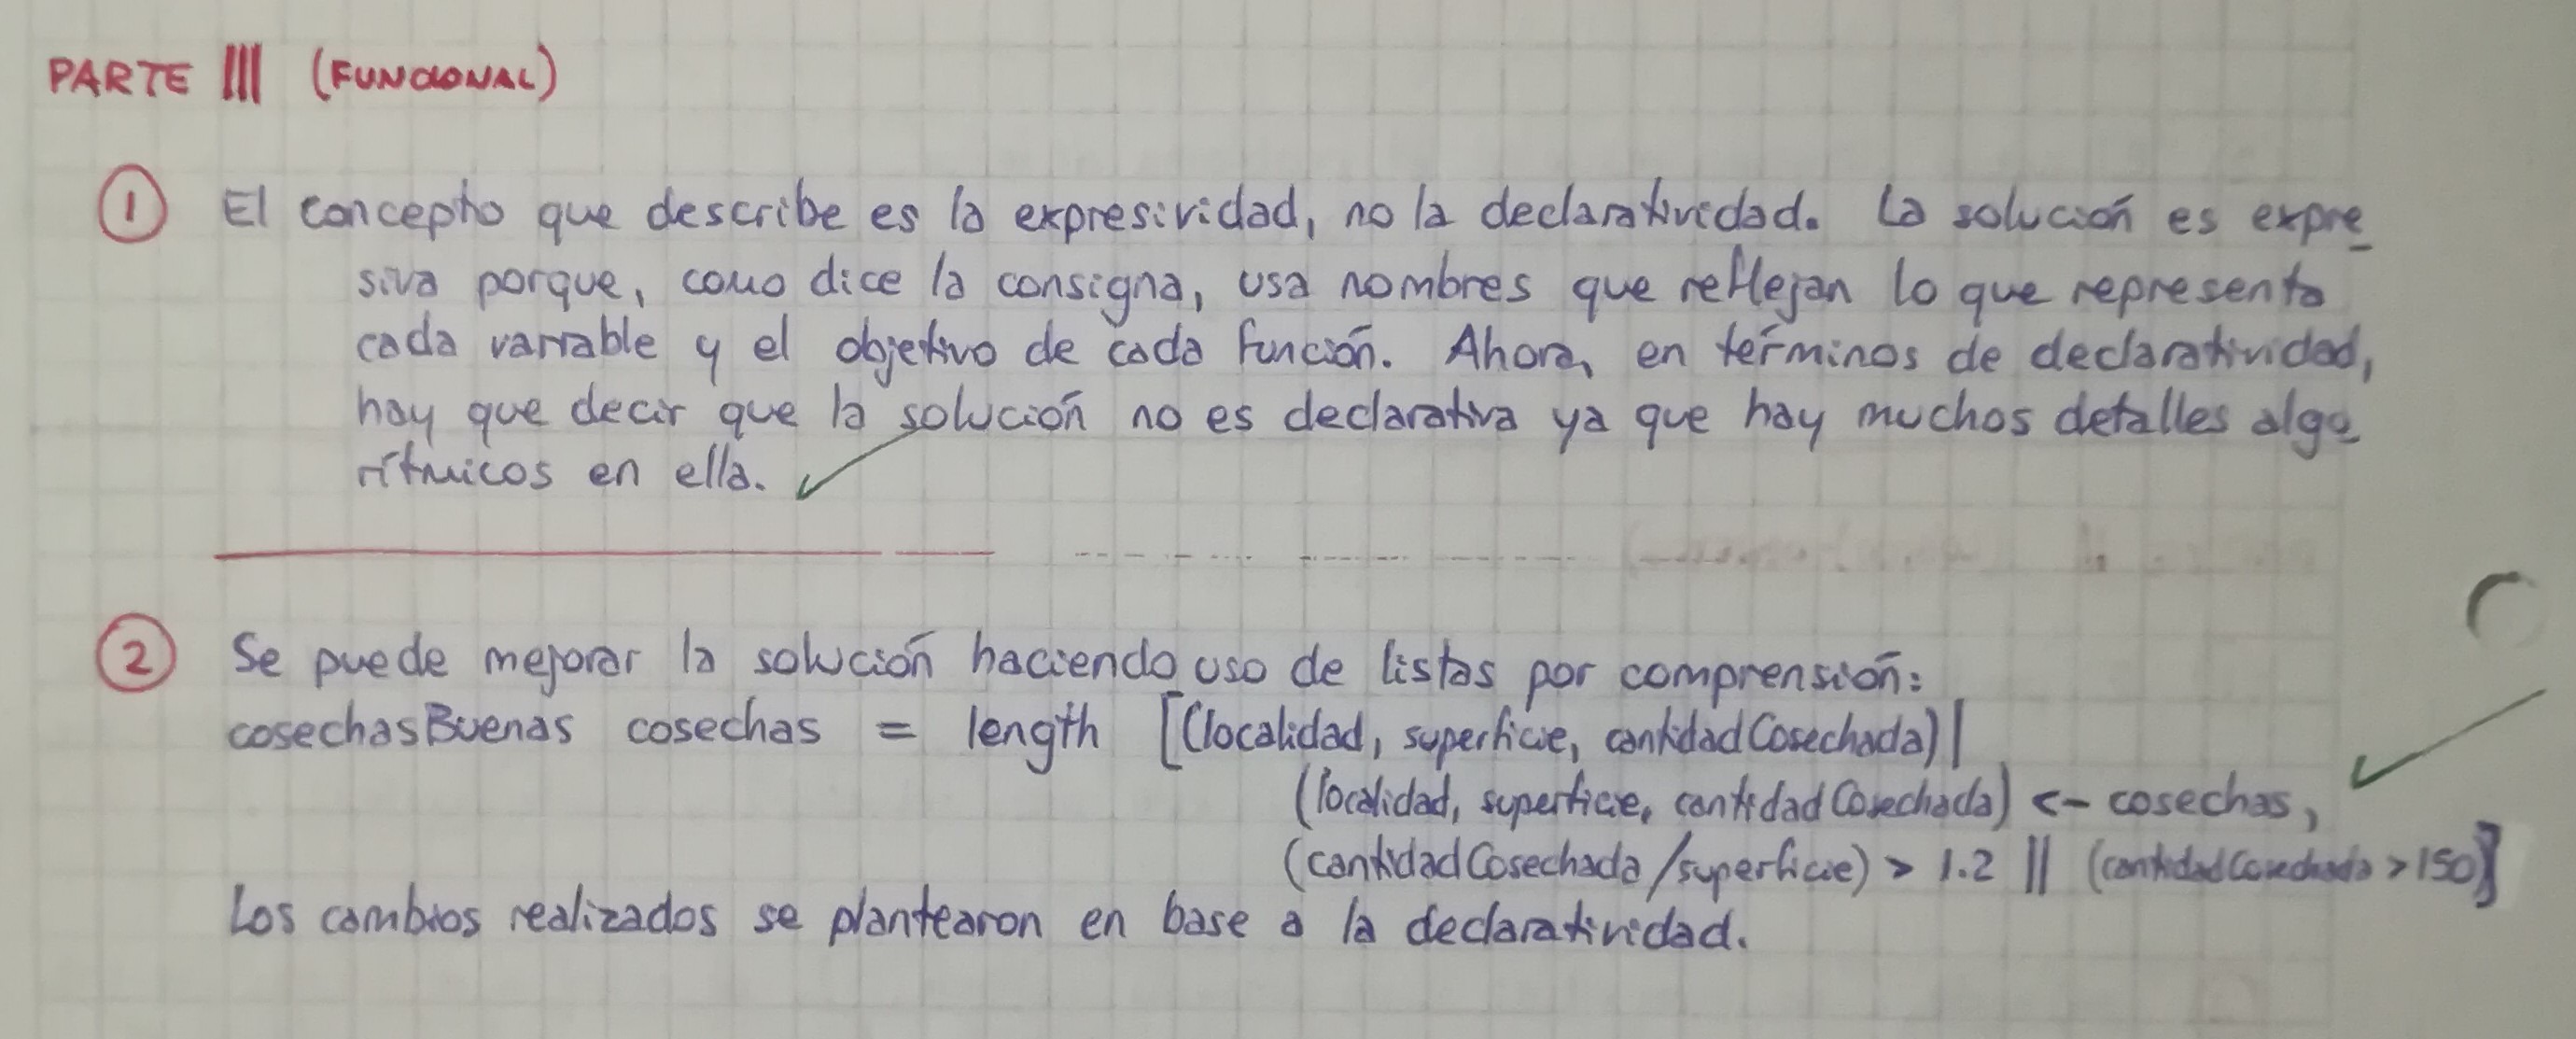 PARTE III (FUNCIONAL)
1 El concepto que describe es la expresividad, no la declaratividad. La solución es expre_
siva porque, como dice la consigna, usa nombres que reflejan lo que representa
cada variable y el objetivo de cada función. Ahora, en términos de declaratividad,
hay que decir que la solución no es declarativa ya que hay muchos detalles algo_
rítmicos en ella.
2 Se puede mejorar la solución haciendo uso de listas por comprensión:
cosechasBuenas cosechas = length [(localidad, superficie, cantidadCosechada)|
(localidad, superficie, cantidadCosechada) <- cosechas,
(cantidadCosechada/superficie) > 1.2 || (cantidadCosechada > 150)]
Los cambios realizados se plantearon en base a la declaratividad.